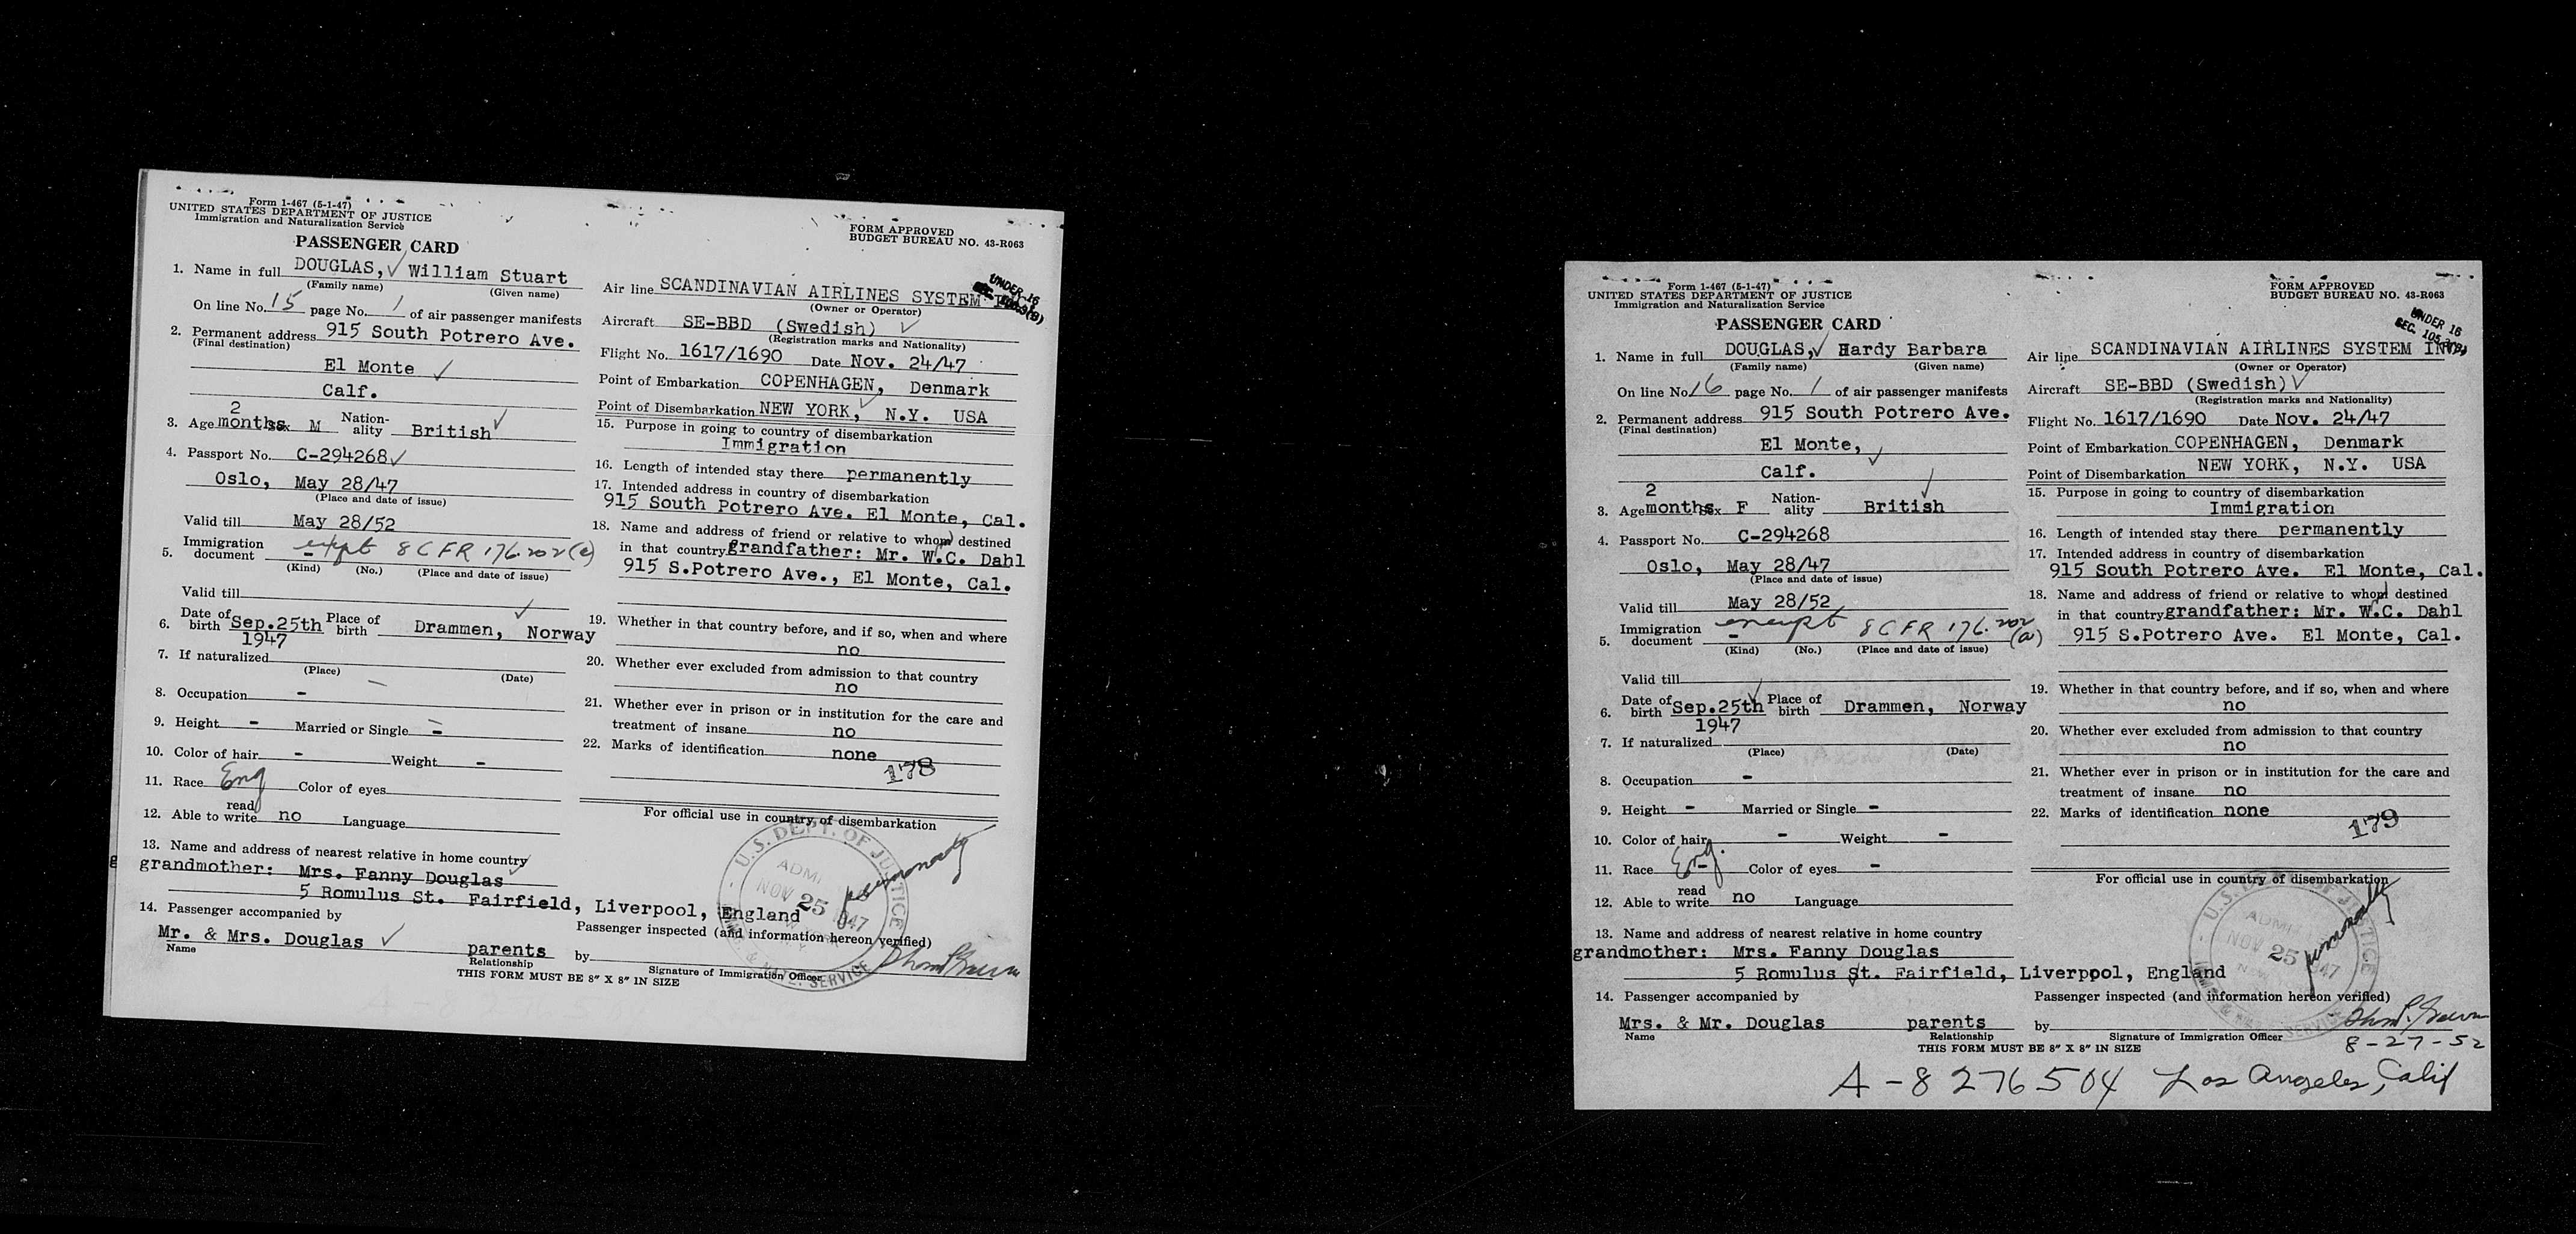 Form 1-467 (5-1-47)
UNITED STATES DEPARTMENT OF JUSTICE
Immigration and Naturalization Service
FORM APPROVED
BUDGET BUREAU NO. 43-R063
PASSENGER CARD
1. Name in full DOUGLAS, William Stuart
(Family name) (Given name)
On line No. 15 page No. 1 of air passenger manifests
2. Permanent address 915 South Potrero Ave.
(Final destination)
El Monte
Calf.
3. Age 2 months Sex M Nation-ality British
4. Passport No. C-294268
Oslo, May 28/47
(Place and date of issue)
Valid till May 28/52
5. Immigration document - 8 CFR 176.202(a)
(Kind) (No.) (Place and date of issue)
Valid till
6. Date of birth Sep.25th 1947 Place of birth Drammen, Norway
7. If naturalized
(Place) (Date)
8. Occupation -
9. Height - Married or Single -
10. Color of hair - Weight -
11. Race Eng Color of eyes
12. Able to read write no Language
13. Name and address of nearest relative in home country
grandmother: Mrs. Fanny Douglas
5 Romulus St. Fairfield, Liverpool, England
14. Passenger accompanied by
Mr. & Mrs. Douglas parents
Name Relationship
THIS FORM MUST BE 8" X 8" IN SIZE
UNDER 16
Air line SCANDINAVIAN AIRLINES SYSTEM
(Owner or Operator)
Aircraft SE-BBD (Swedish)
(Registration marks and Nationality)
Flight No. 1617/1690 Date Nov. 24/47
Point of Embarkation COPENHAGEN, Denmark
Point of Disembarkation NEW YORK, N.Y. USA
15. Purpose in going to country of disembarkation
Immigration
16. Length of intended stay there permanently
17. Intended address in country of disembarkation
915 South Potrero Ave. El Monte, Cal.
18. Name and address of friend or relative to whom destined
in that country grandfather: Mr. W.C. Dahl
915 S.Potrero Ave., El Monte, Cal.
19. Whether in that country before, and if so, when and where
no
20. Whether ever excluded from admission to that country
no
21. Whether ever in prison or in institution for the care and
treatment of insane no
22. Marks of identification none
178
For official use in country of disembarkation
U.S. DEPT. OF JUSTICE
NOV 25 1947
permanently
Passenger inspected (and information hereon verified)
by
Signature of Immigration Officer
Form 1-467 (5-1-47)
UNITED STATES DEPARTMENT OF JUSTICE
Immigration and Naturalization Service
FORM APPROVED
BUDGET BUREAU NO. 43-R063
PASSENGER CARD
1. Name in full DOUGLAS, Hardy Barbara
(Family name) (Given name)
On line No. 16 page No. 1 of air passenger manifests
2. Permanent address 915 South Potrero Ave.
(Final destination)
El Monte,
Calf.
3. Age 2 months Sex F Nation-ality British
4. Passport No. C-294268
Oslo, May 28/47
(Place and date of issue)
Valid till May 28/52
5. Immigration document - exempt 8 CFR 176.202 (a)
(Kind) (No.) (Place and date of issue)
Valid till
6. Date of birth Sep.25th 1947 Place of birth Drammen, Norway
7. If naturalized
(Place) (Date)
8. Occupation -
9. Height - Married or Single -
10. Color of hair - Weight -
11. Race Eng. Color of eyes -
12. Able to read write no Language
13. Name and address of nearest relative in home country
grandmother: Mrs. Fanny Douglas
5 Romulus St. Fairfield, Liverpool, England
14. Passenger accompanied by
Mrs. & Mr. Douglas parents
Name Relationship
THIS FORM MUST BE 8" X 8" IN SIZE
UNDER 16
Air line SCANDINAVIAN AIRLINES SYSTEM
(Owner or Operator)
Aircraft SE-BBD (Swedish)
(Registration marks and Nationality)
Flight No. 1617/1690 Date Nov. 24/47
Point of Embarkation COPENHAGEN, Denmark
Point of Disembarkation NEW YORK, N.Y. USA
15. Purpose in going to country of disembarkation
Immigration
16. Length of intended stay there permanently
17. Intended address in country of disembarkation
915 South Potrero Ave. El Monte, Cal.
18. Name and address of friend or relative to whom destined
in that country grandfather: Mr. W.C. Dahl
915 S.Potrero Ave. El Monte, Cal.
19. Whether in that country before, and if so, when and where
no
20. Whether ever excluded from admission to that country
no
21. Whether ever in prison or in institution for the care and
treatment of insane no
22. Marks of identification none
179
For official use in country of disembarkation
NOV 25 1947
permanently
Passenger inspected (and information hereon verified)
by
Signature of Immigration Officer
8-27-52
A-8276504 Los Angeles, Calif